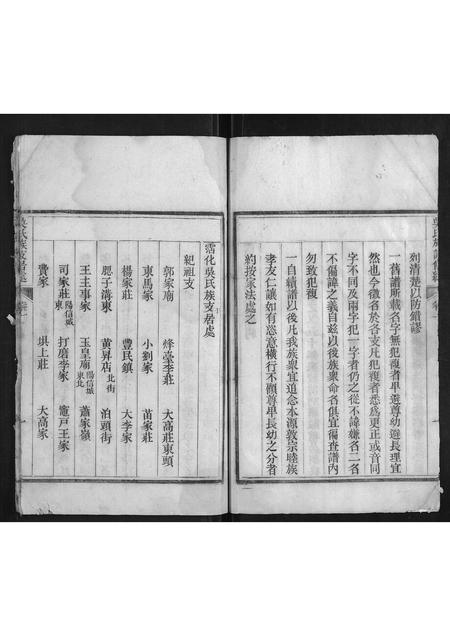 刻清楚以防錯謬
一舊譜所載名字無犯複者卑遜尊幼遜長理宜
然也今徵名於各支凡犯複者悉為更正或音同
字不同及兩字犯一字者仍之從不諱嫌名二名
不偏諱之義自兹以後族衆命名俱宜徧查譜内
勿致犯複
一自續譜以後凡我族衆宜追念本源敦宗睦族
孝友仁讓如有恣意橫行不顧尊卑長幼之分者
約按家法處之
霑化吳氏族支居處
紀祖支
郭家廟 烽臺李莊 大高莊東頭
東馬家 小劉家 苗家莊
楊家莊 豐民鎮 大李家
肥子溝東 黄昇店北街 泊頭街
王主事家 玉皇廟陽信城東北 蕭家嶺
司家莊陽信城東 打磨李家 竈戸王家
費家 垻上莊 大高家
吳氏族譜 卷一